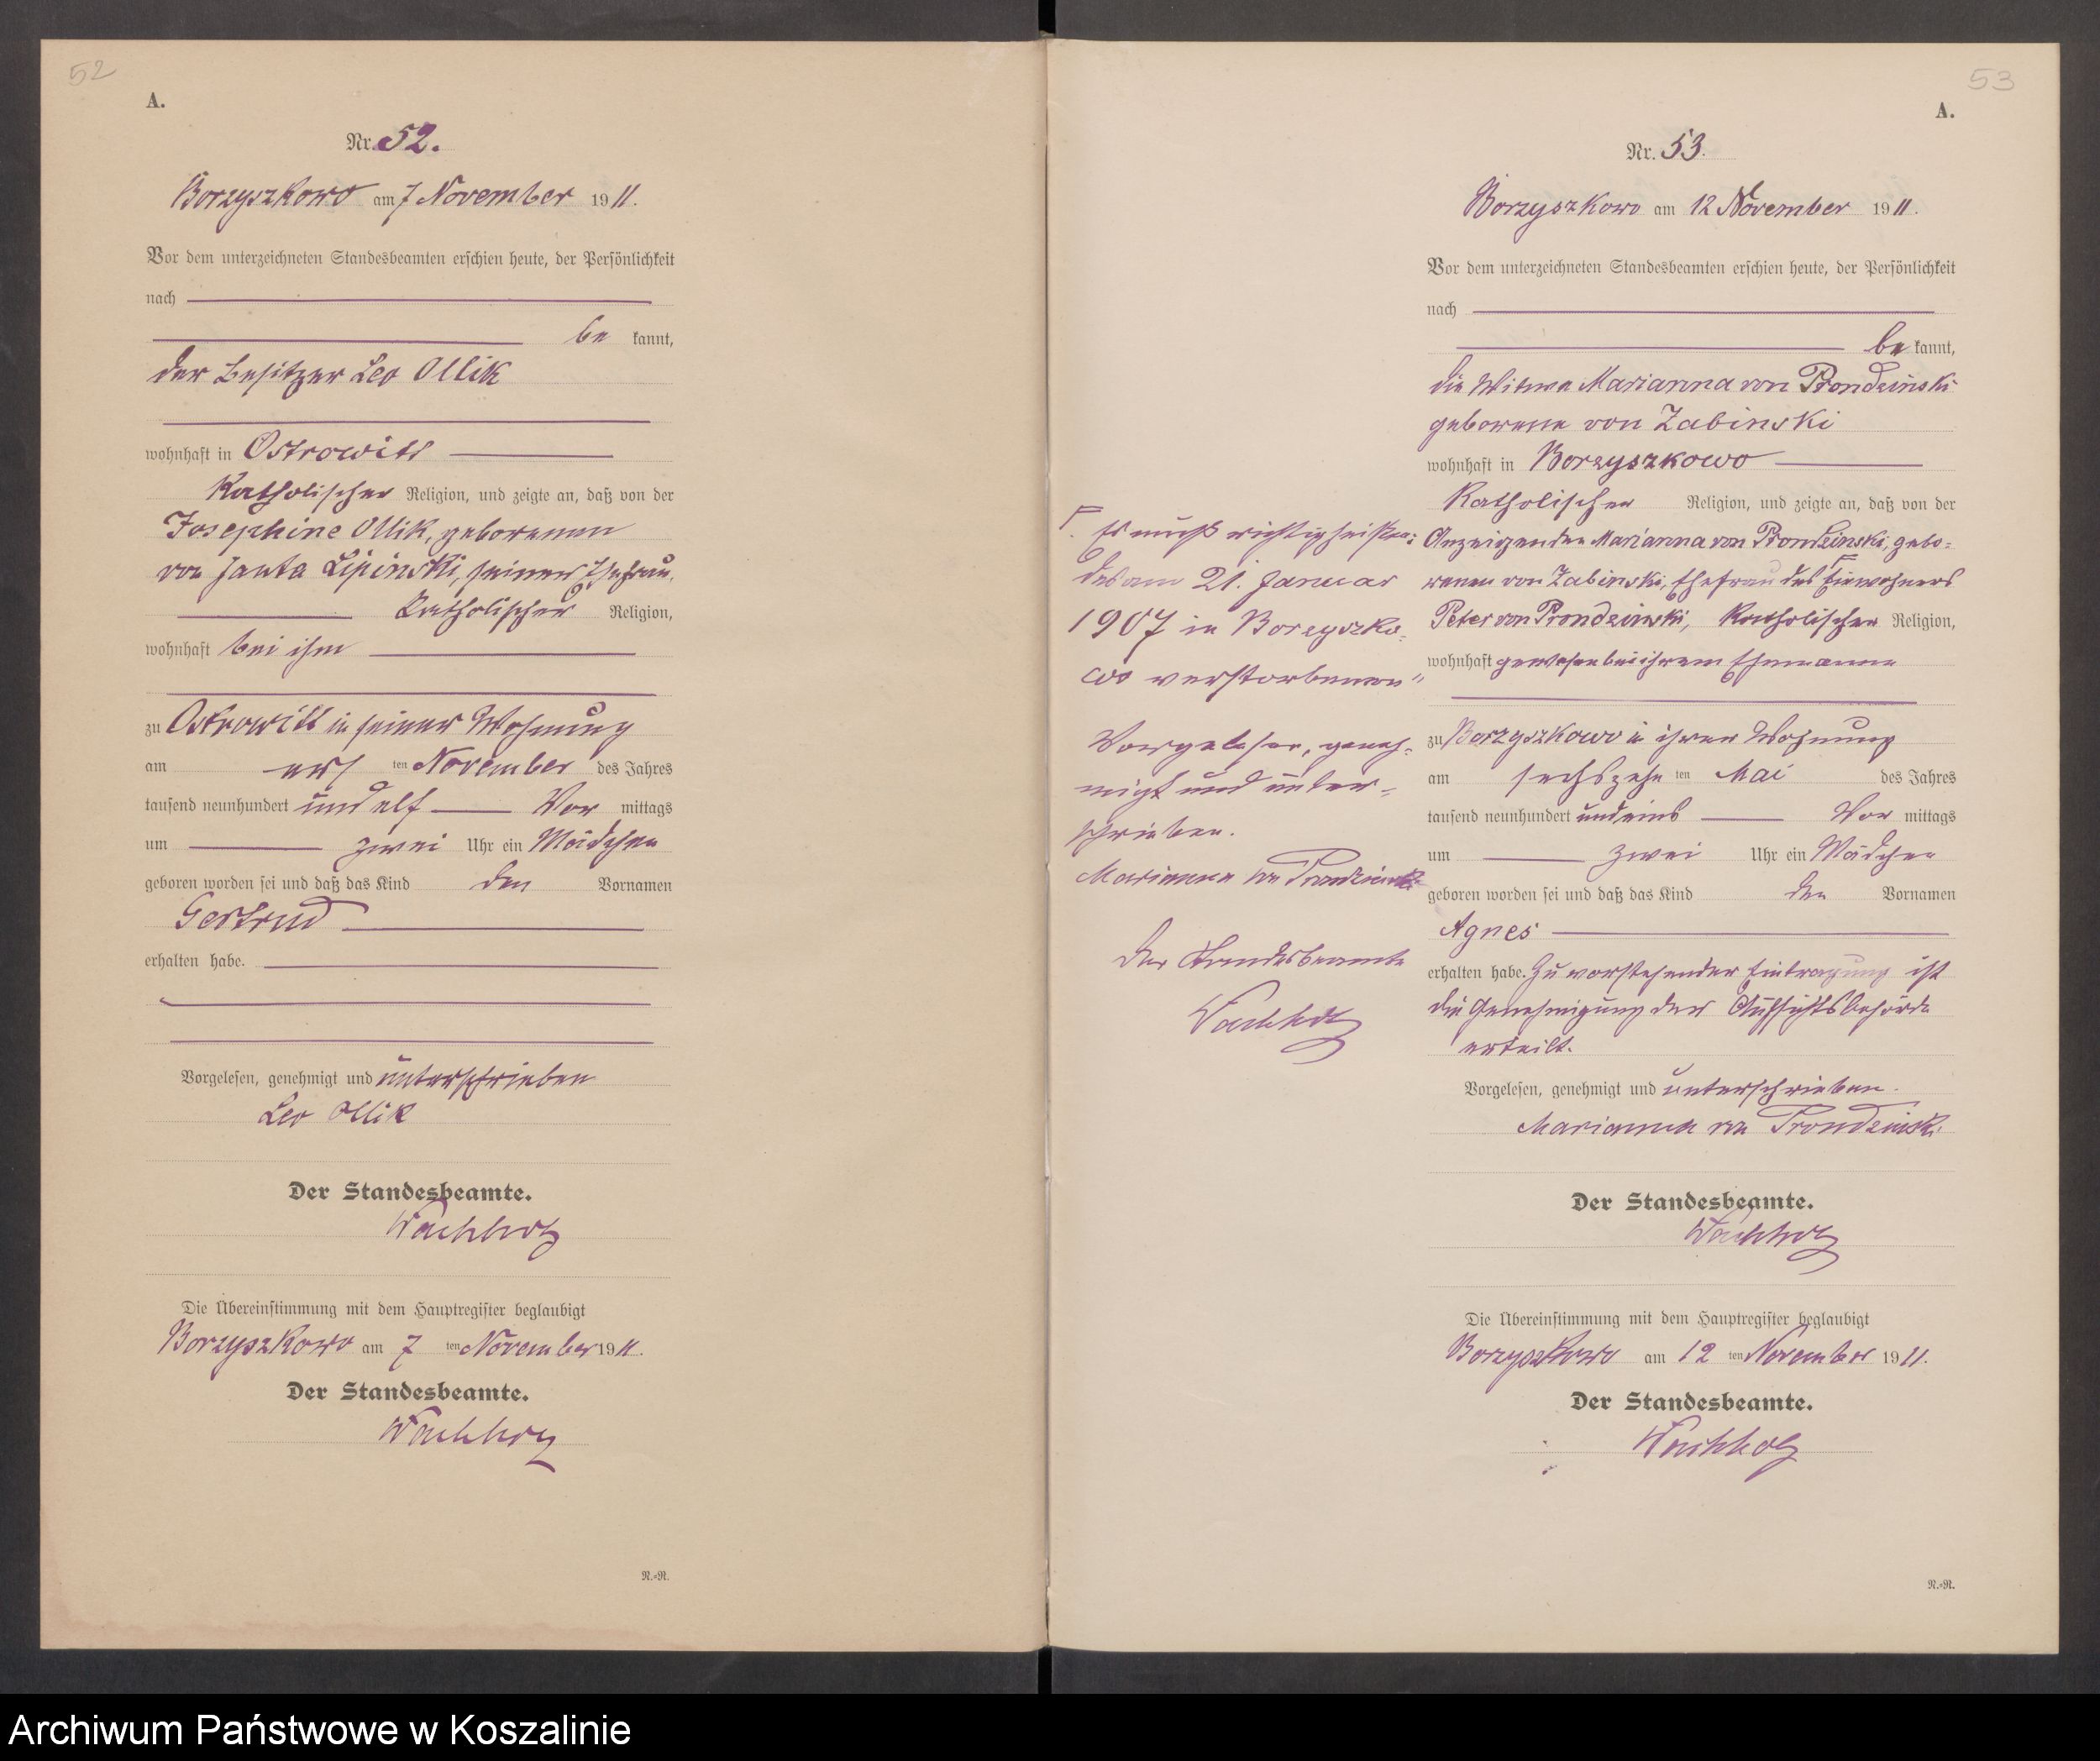 52
A.
Nr. 52.
Borzyszkowo am 7 November 1911.
Vor dem unterzeichneten Standesbeamten erschien heute, der Persönlichkeit
nach
be kannt,
der Besitzer Leo Ollik
wohnhaft in Ostrowitt
Katholischer Religion, und zeigte an, daß von der
Josephine Ollik, geborenen
von Janta Lipinski, seiner Ehefrau,
Katholischer Religion,
wohnhaft bei ihm
zu Ostrowitt in seiner Wohnung
am ten November des Jahres
tausend neunhundert und elf Vor mittags
um zwei Uhr ein Mädchen
geboren worden sei und daß das Kind den Vornamen
Gertrud
erhalten habe.
Vorgelesen, genehmigt und unterschrieben
Leo Ollik
Der Standesbeamte.
Wachholz
Die Übereinstimmung mit dem Hauptregister beglaubigt
Borzyszkowo am 7 ten November 1911.
Der Standesbeamte.
Wachholz
R.=R.
53
A.
Nr. 53.
Borzyszkowo am 12 November 1911.
Vor dem unterzeichneten Standesbeamten erschien heute, der Persönlichkeit
nach
be kannt,
die Witwe Marianna von Prondzinski
geborene von Zabinski
wohnhaft in Borzyszkowo
Katholischer Religion, und zeigte an, daß von der
Anzeigenden Marianna von Prondzinski, gebo=
renen von Zabinski, Ehefrau des Γ Einwohners
Peter von Prondzinski, Katholischer Religion,
wohnhaft gewesen bei ihrem Ehemanne
zu Borzyszkowo in ihrer Wohnung
am sechszehn ten Mai des Jahres
tausend neunhundert und eins Vor mittags
um zwei Uhr ein Mädchen
geboren worden sei und daß das Kind den Vornamen
Agnes
erhalten habe. Zu vorstehender Eintragung ist
die Genehmigung der Aufsichtsbehörde
erteilt.
Vorgelesen, genehmigt und unterschrieben.
Marianna von Prondzinski
Der Standesbeamte.
Wachholz
Die Übereinstimmung mit dem Hauptregister beglaubigt
Borzyszkowo am 12 ten November 1911.
Der Standesbeamte.
Wachholz
R.=R.
Γ. Es muß richtig heißen:
des am 21. Januar
1907 in Borzyszko=
wo verstorbenen"
Vorgelesen, geneh=
migt und unter=
schrieben.
Marianna von Prondzinski
Der Standesbeamte
Wachholz
Archiwum Państwowe w Koszalinie